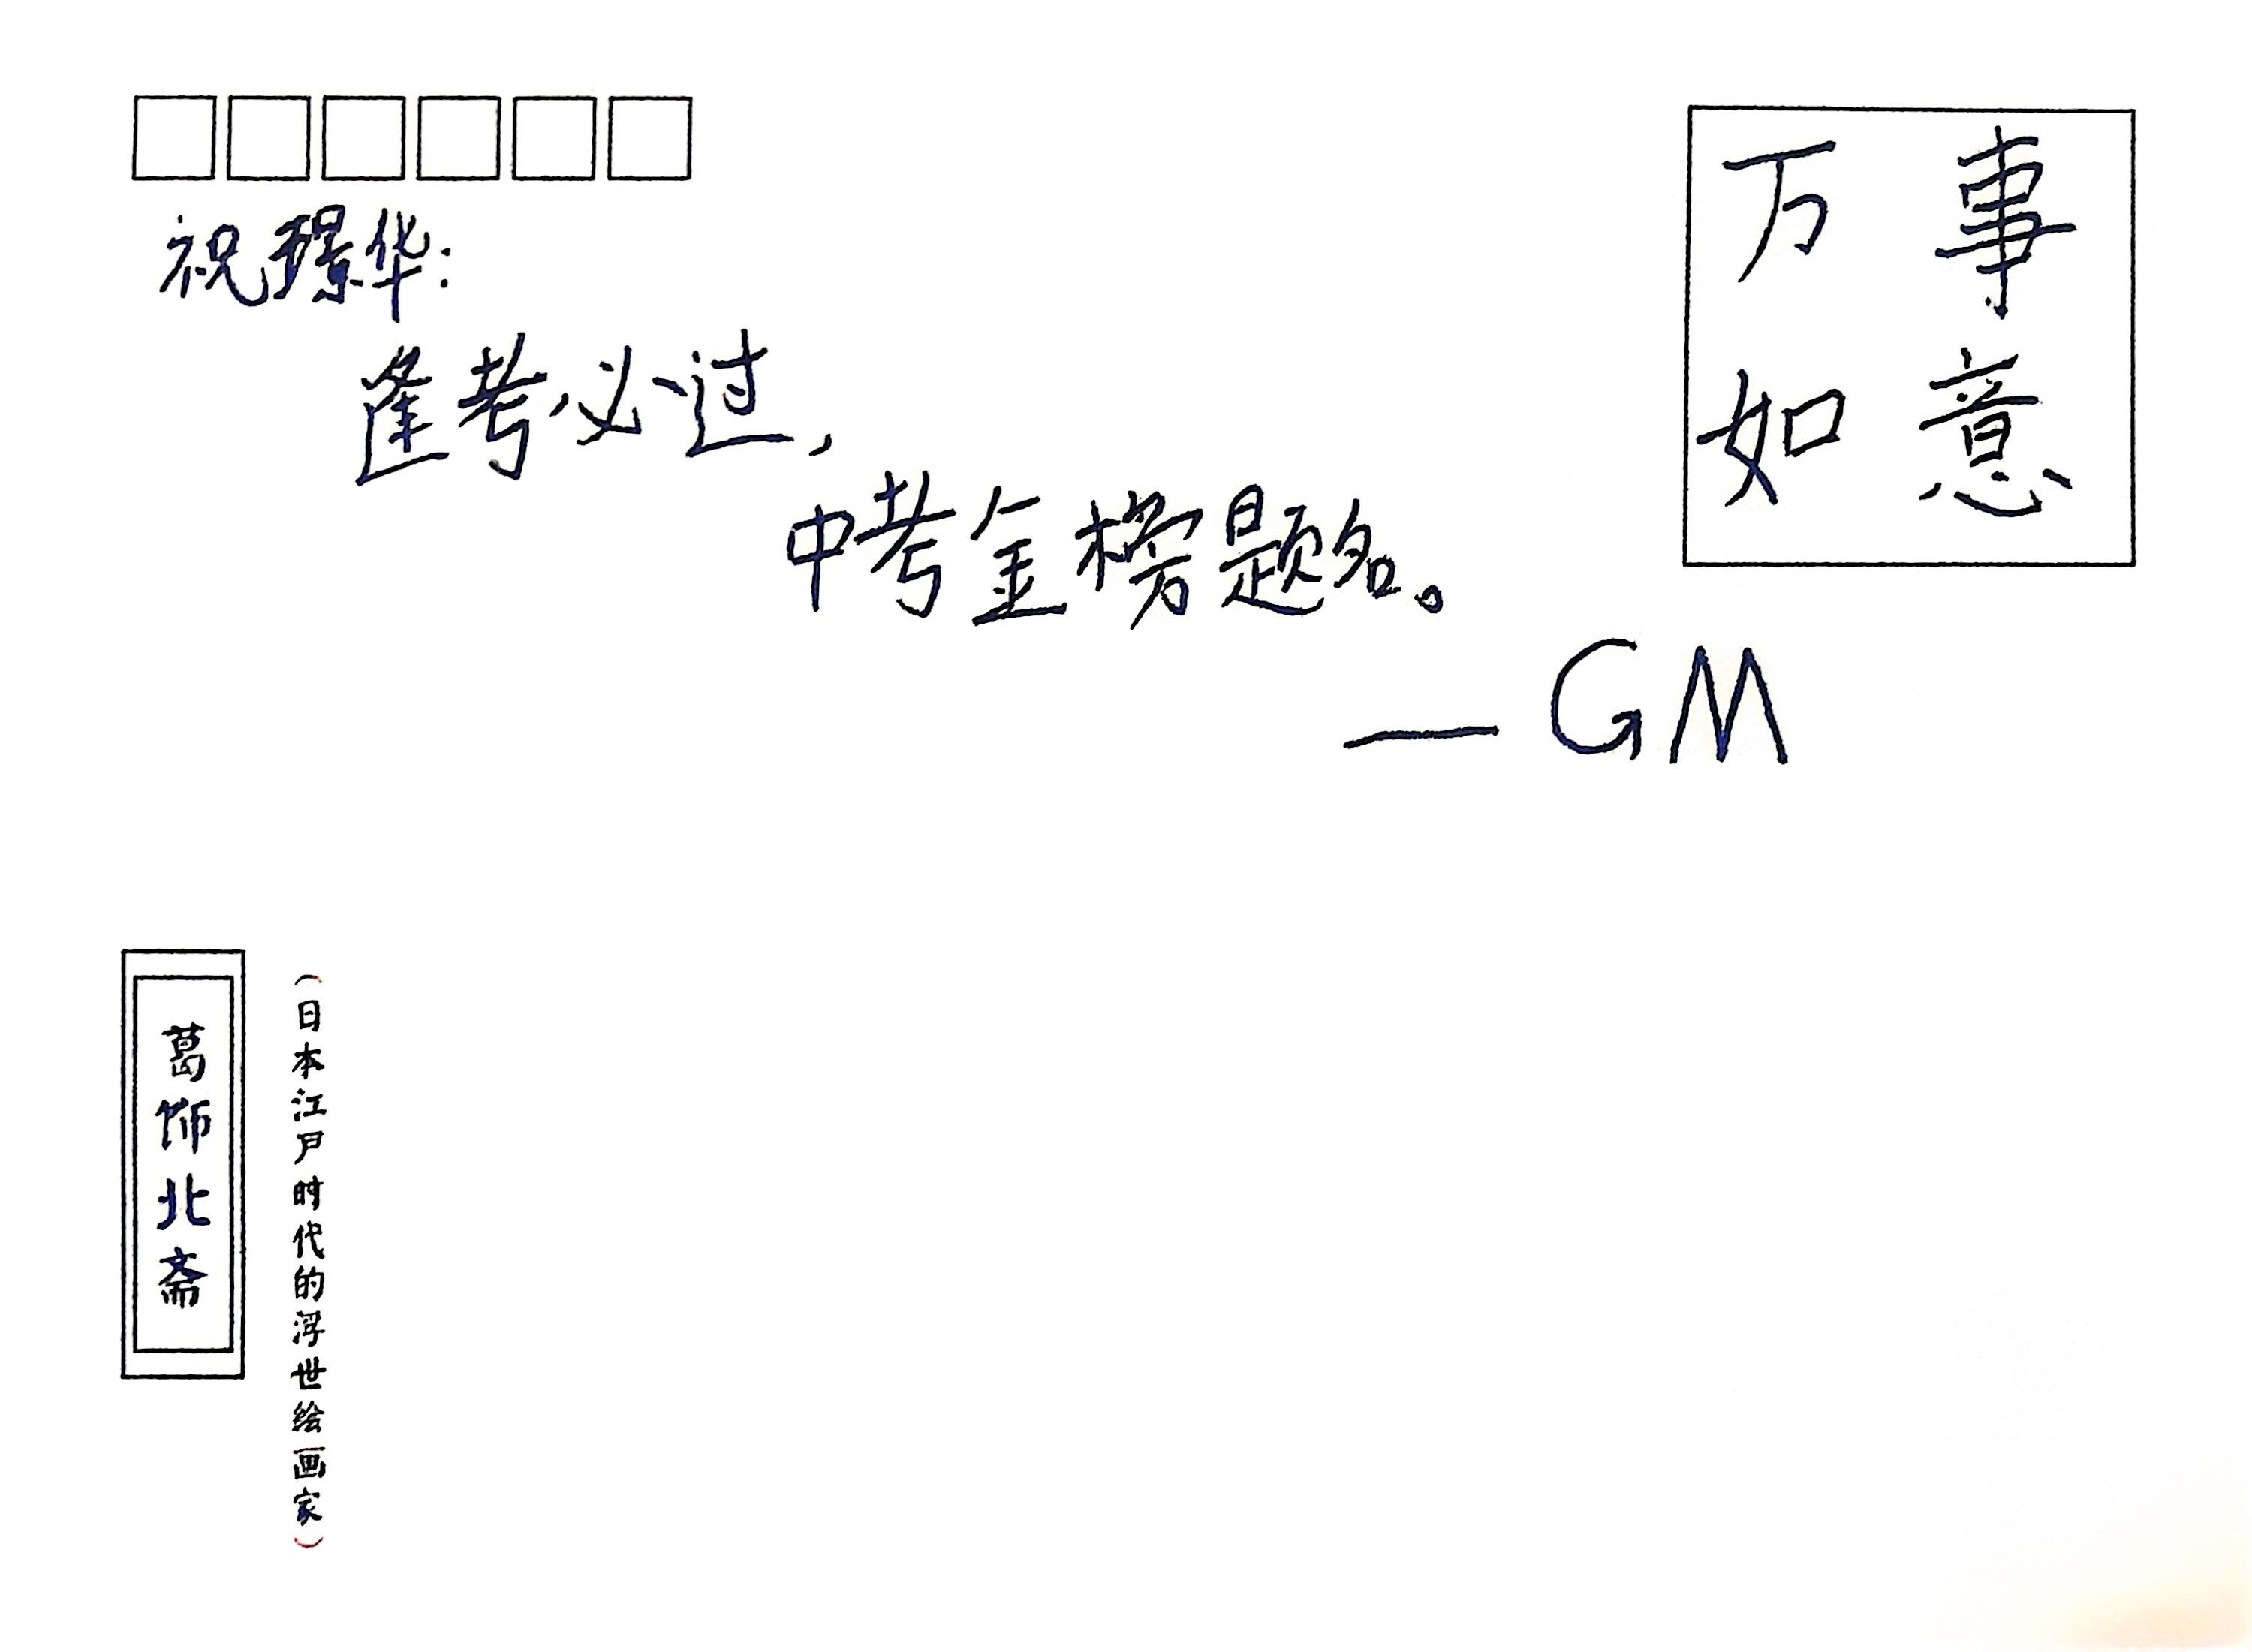 祝璟华:
逢考必过,
中考金榜题名。
— GM
万事
如意
葛饰北斋
(日本江户时代的浮世绘画家)